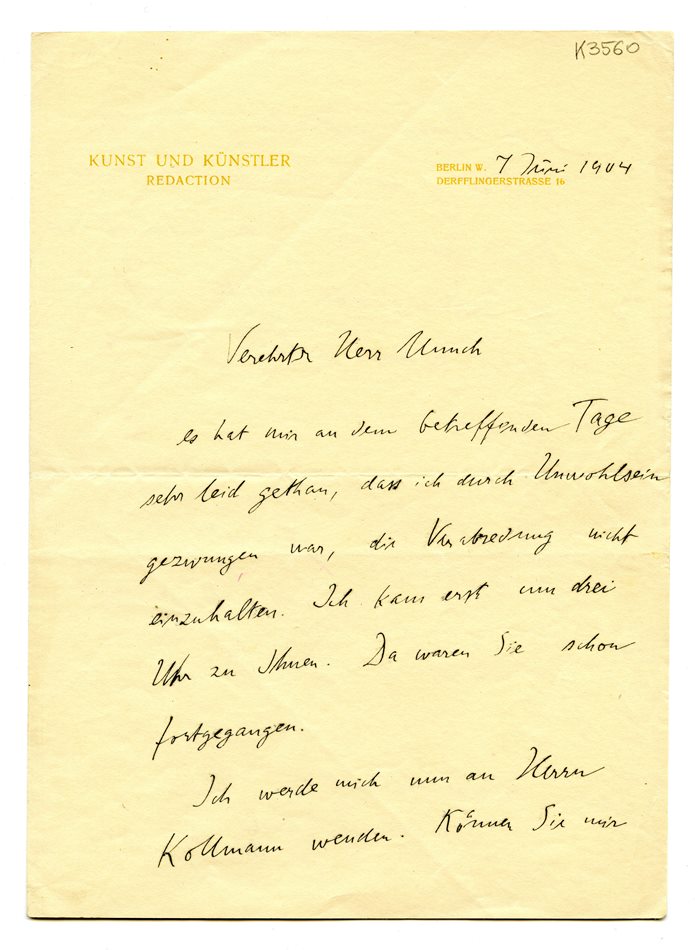 K3560
KUNST UND KÜNSTLER
REDACTION
BERLIN W. 7 Juni 1904
DERFFLINGERSTRASSE 16
Verehrter Herr Munch
es hat mir an dem betreffenden Tage
sehr leid gethan, dass ich durch Unwohlsein
gezwungen war, die Verabredung nicht
einzuhalten. Ich kam erst um drei
Uhr zu Ihnen. Da waren Sie schon
fortgegangen.
Ich werde mich nun an Herrn
Kollmann wenden. Können Sie mir